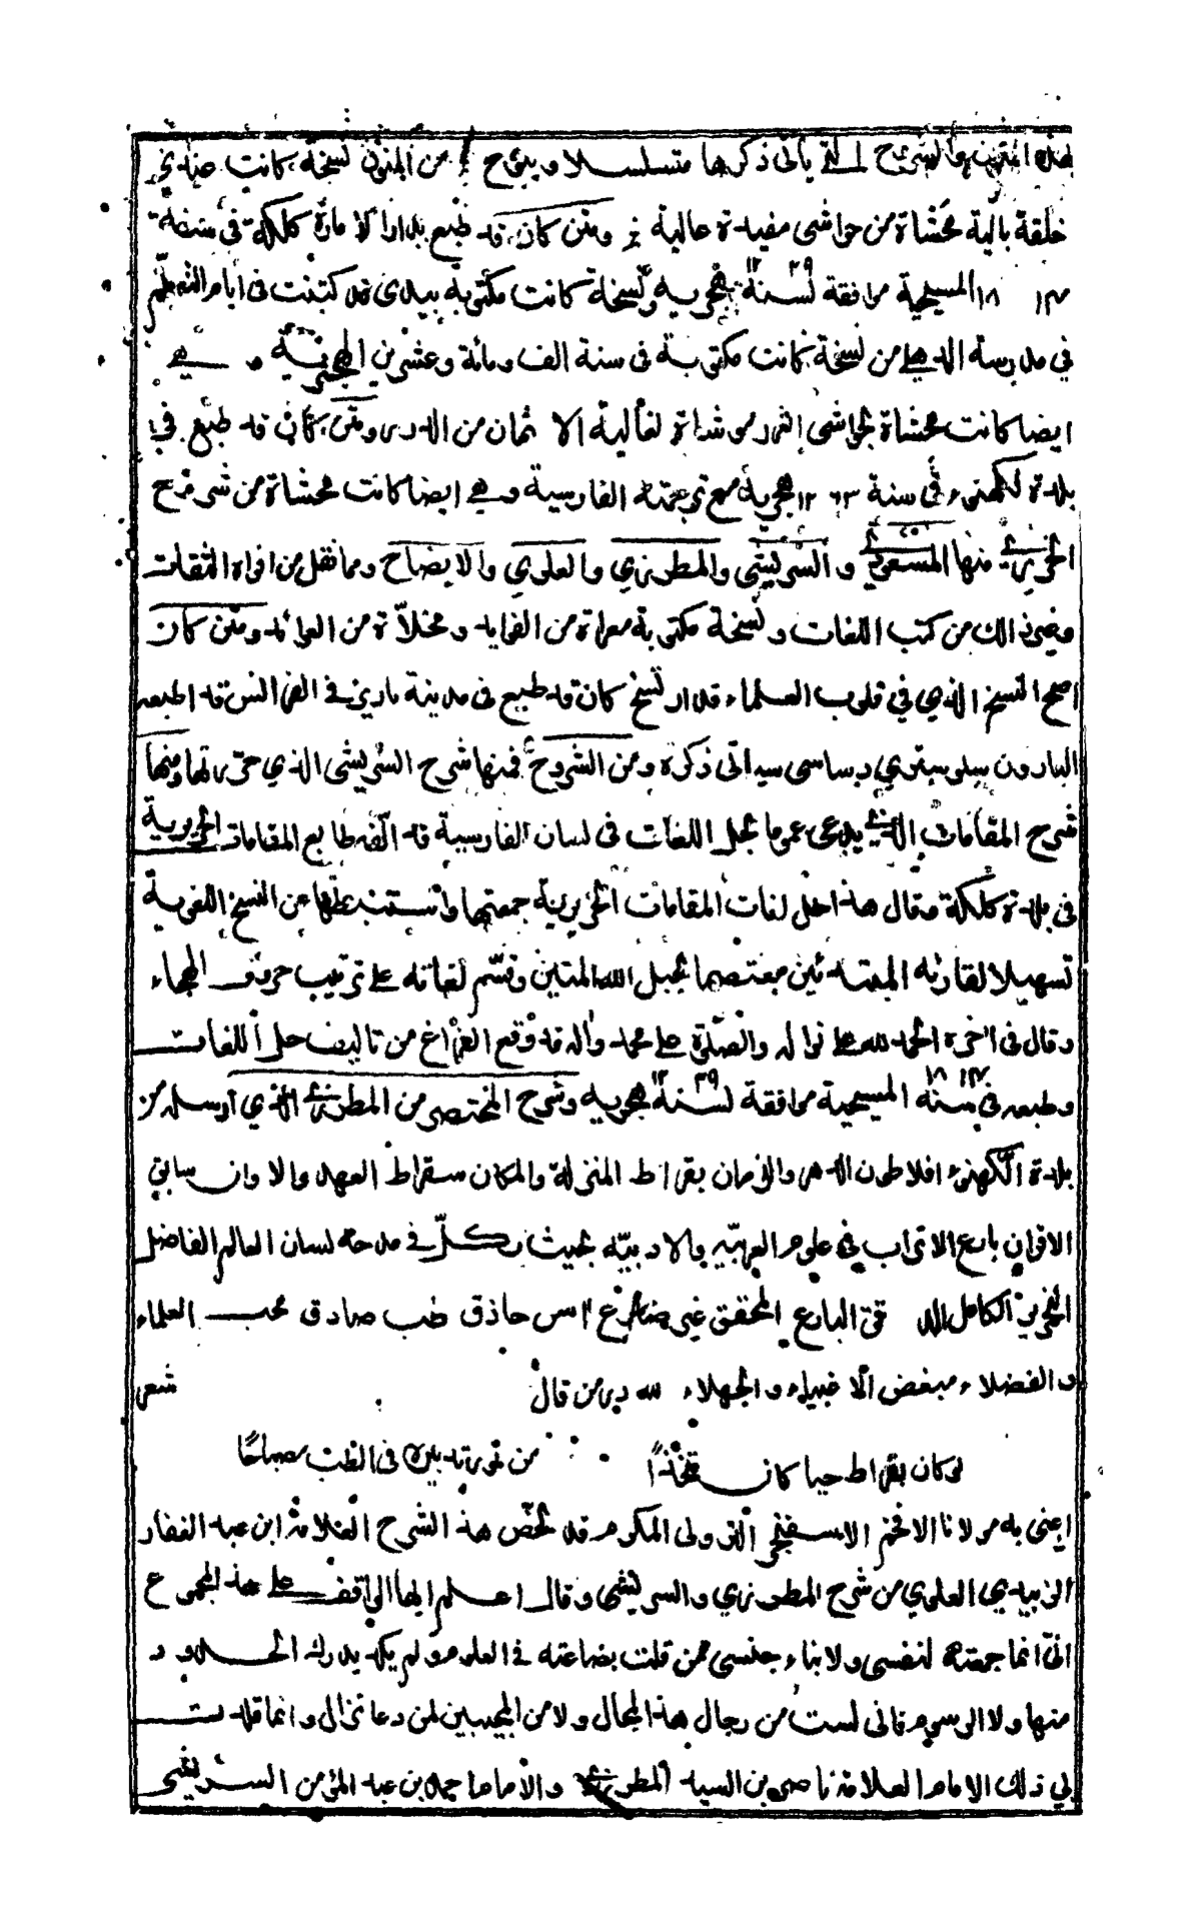 لهذه المتون والشروح التي يأتي ذكرها متسلسلا ويتوح من المتون نسخة كانت عندي
خلقة بالية محشاة من حواشى مفيدة عالية ومتن كان قد طبع بدار الامارة كلكتة فى سنة
١٢ ١٨ المسيحية موافقة لسنة ١٢٢٩ هجرية ونسخة كانت مكتوبة بيدى قد كتبت فى أيام التعلم
في مدرسة الدهلي من نسخة كانت مكتوبة فى سنة الف ومائة وعشرين الهجرية و هي
ايضا كانت محشاة بحواشى لغالية الاثمان من الدر ومتن كان قد طبع في
بلدة لكهنوء فى سنة ١٢٦٣ هجرية مع ترجمته الفارسية وهي ايضا كانت محشاة من شروح
الحريري منها المسعودي والشريشى والمطرزي والعلوي والايضاح ومما نقل من افواه الثقات
وغير ذالك من كتب اللغات ونسخة مكتوبة معراة من الفوايد ومخلاّة من العوائد ومتن كان
اصح النسخ الذي في قلوب العلماء قد ارتسخ كان قد طبع فى مدينة باريز في الفرانس قد اطبعه
البارون سلوستري دساسى سيداتى ذكره ومن الشروح فمنها شرح الشريشى الذي حررتها ومنها
شرح المقامات الذي يدعى عموما بحل اللغات فى لسان الفارسية قد الّفه طابع المقامات الحريرية
فى بلدة كلكتة وقال هذا حل لغات المقامات الحريرية جمعتها واستنبطتها من النسخ اللغوية
تسهيلا لقارئه المبتدئين معتصما بحبل الله المتين وقسّم لغاته على ترتيب حروف الهجاء
وقال فى اخره الحمد لله على نواله والصلوة على محمد واله قد وقع الفراغ من تاليف حل اللغات
وطبعه فى سنه ١٨١٢ المسيحية موافقة لسنة ١٢٢٩ هجريه وشرح المختصر من المطرزي الذي ارسله من
بلدة الكهنوء افلاطون الدهر والزمان بقراط المنزلة والمكان سقراط العهد والاوان سابق
الاقران بارع الاتراب في علوم العربيّه والادبيّه بحيث كلّ في مدحه لسان العالم الفاضل
النحرير الكامل قى البارع المحقق غير حاذق طب صادق محب العلماء
والفضلاء مبغض الاغبياء والجهلاء لله در من قال شعر
لو كان بقراط حيا كان متخذًا من نور تدبيره فى الطب مصباحًا
اعنى به مولانا الافخم المولى المكرم قد لخّص هذا الشرح العلامة ابن عبد الغفار
الزبيدي العلوي من شرح المطرزي والشريشى وقال اعلم ايها الواقف على هذا المجموع
انى انما جمعته لنفسى ولابناء جنسى ممن قلت بضاعته في العلوم ولم يكد يدرك الحدود
منها ولا الرسوم فانى لست من رجال هذا المجال ولا من المجيبين لمن دعا نزال وانما قلدت
في ذلك الامام العلامة ناصر بن السيد المطرزي والامام احمد بن عبد المؤمن الشريشى